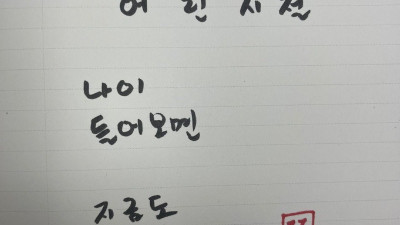 어린 시절
나이
들어보면
지금도